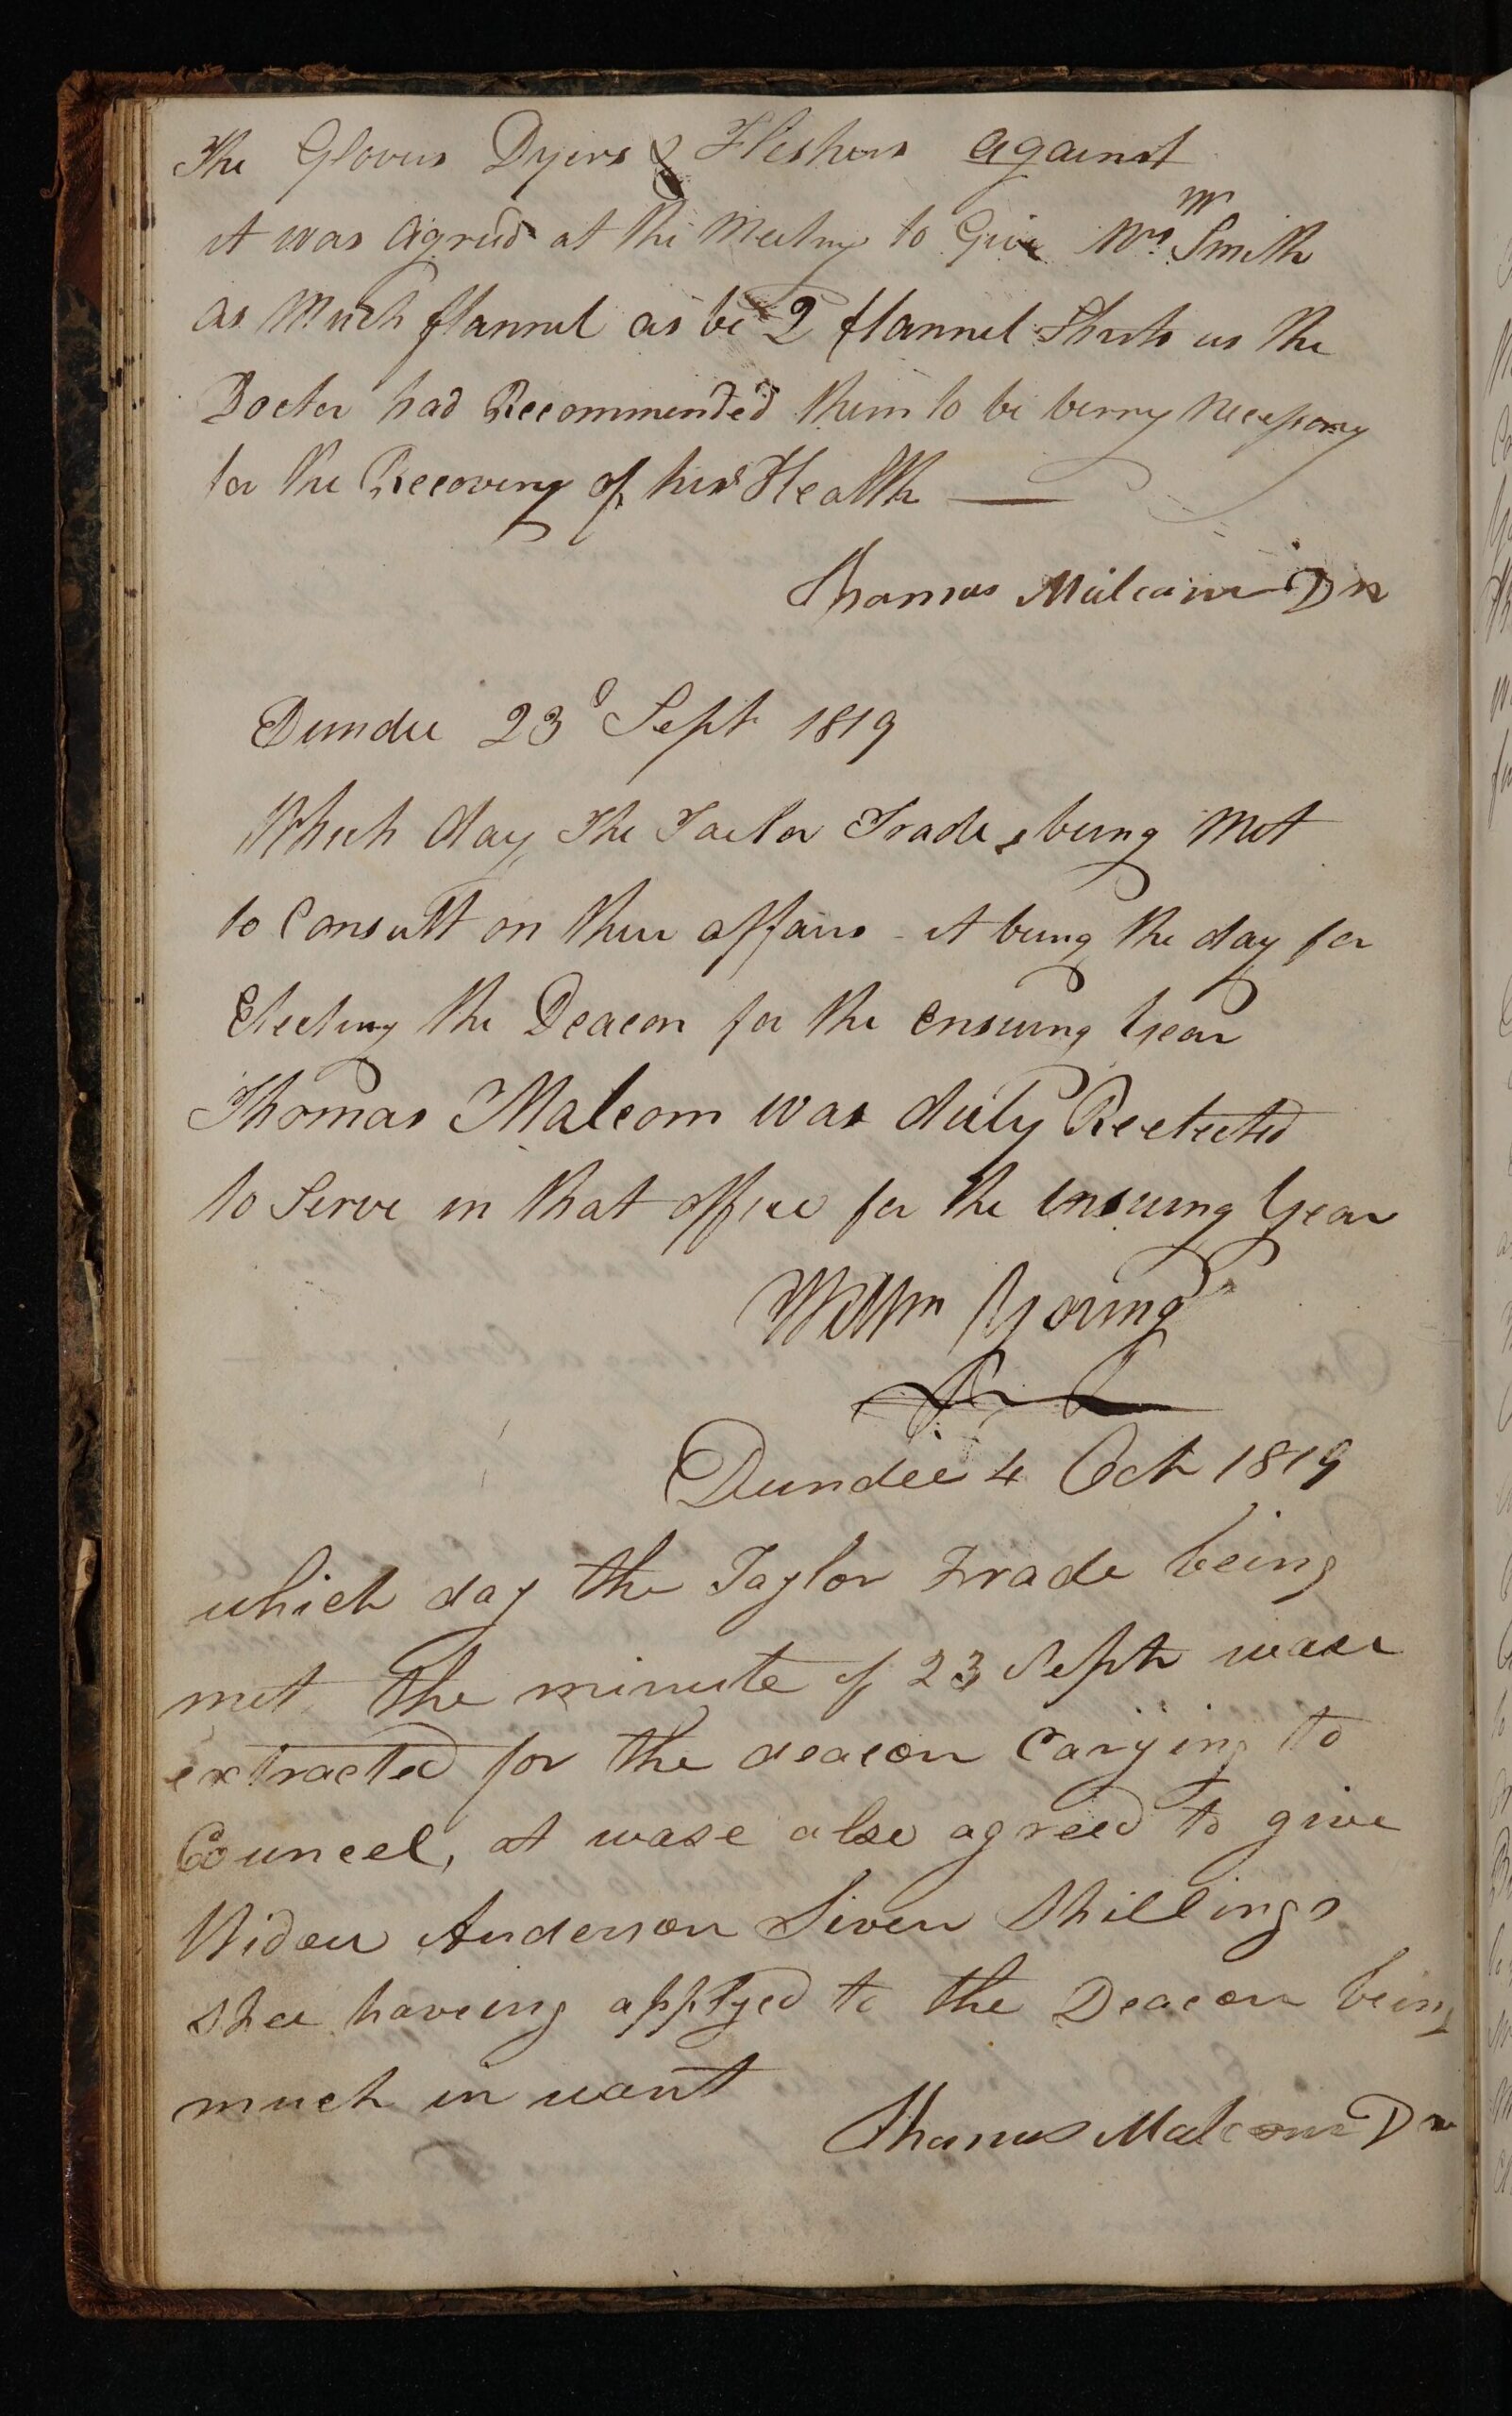 The Glovers Dyers & Fleshers against
it was agreed at the Meeting to Give Mrs Wm Smith
as Much flannel as be 2 flannel Shirts as the
Docter had Recommended them to be berry necessary
for the Recovery of his Health —
Thomas Malcom Dn
Dundee 23d Sept 1819
Which day The Tailor Trade being Met
to Consult on their affairs - it being the day for
Electing the Deacon for the ensuing Year
Thomas Malcom was duly Reelected
to Serve in that office for the Ensuing Year
Willm Young
Dundee 4 Oct 1819
which day the Taylor Trade being
met the minute of 23 Sept wase
extracted for the deacon Carying to
Councel, it wase alse agreed to give
Widow Anderson Seven Shillings
shee haveing applyed to the Deacon being
much in want
Thomas Malcom Dn